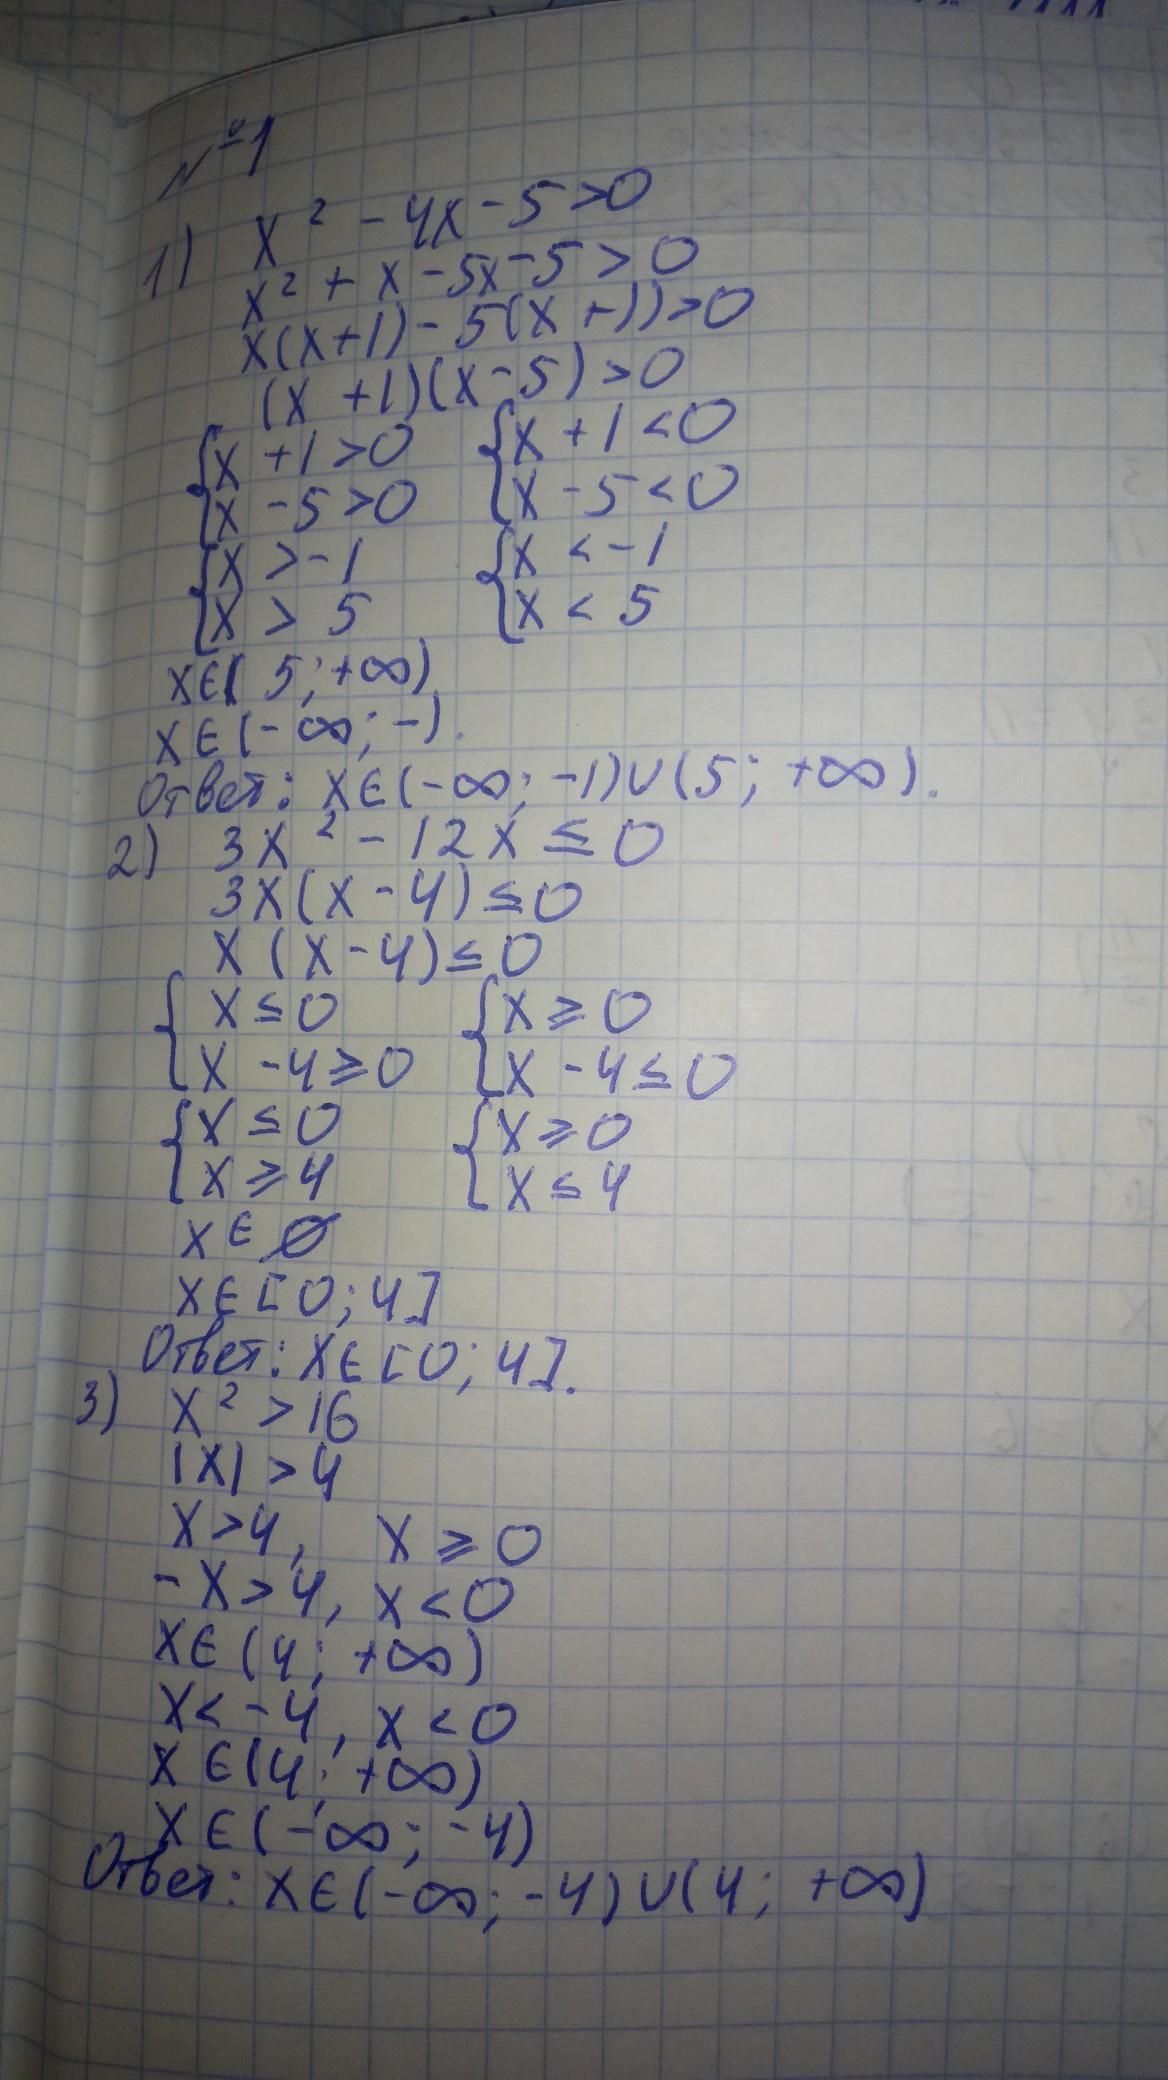 №1
1) x² - 4x - 5 > 0
x² + x - 5x - 5 > 0
x(x+1) - 5(x+1) > 0
(x+1)(x-5) > 0
{x+1>0 {x+1<0
{x-5>0 {x-5<0
{x>-1 {x<-1
{x>5 {x<5
x∈(5;+∞)
x∈(-∞;-).
Ответ: x∈(-∞;-1)∪(5;+∞).
2) 3x² - 12x ≤ 0
3x(x-4) ≤ 0
x(x-4) ≤ 0
{x≤0 {x≥0
{x-4≥0 {x-4≤0
{x≤0 {x≥0
{x≥4 {x≤4
x∈∅
x∈[0;4]
Ответ: x∈[0;4].
3) x² > 16
|x| > 4
x>4, x≥0
-x>4, x<0
x∈(4;+∞)
x<-4, x<0
x∈(4;+∞)
x∈(-∞;-4)
Ответ: x∈(-∞;-4)∪(4;+∞)